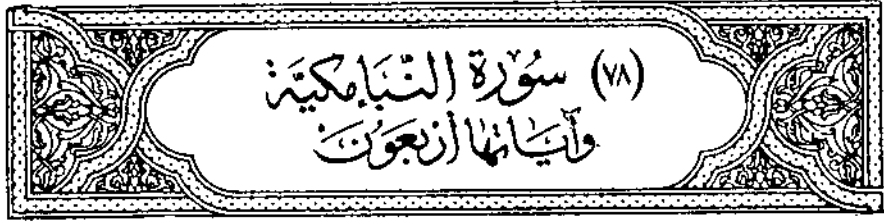 (٧٨) سُورَة النَّبَإ مَكيَّة
وَآيَاتهَا أربَعُونَ